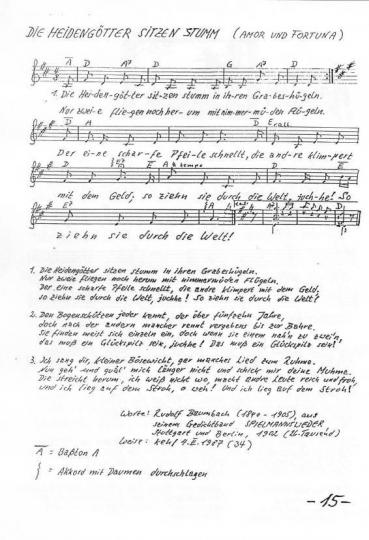 DIE HEIDENGÖTTER SITZEN STUMM (AMOR UND FORTUNA)
A D A⁷ D G A⁷ D
1. Die Hei-den-göt-ter sit-zen stumm in ih-ren Gra-bes-hü-geln.
Nur zwei-e flie-gen noch her-um mit nim-mer-mü-den Flü-geln.
D A D E rall.
Der ei-ne schar-fe Pfei-le schnellt, die and-re klim-pert
mit dem Geld; so ziehn sie durch die Welt, juch-he! So
ziehn sie durch die Welt!
1. Die Heidengötter sitzen stumm in ihren Grabeshügeln.
Nur zweie fliegen noch herum mit nimmermüden Flügeln.
Der eine scharfe Pfeile schnellt, die andre klimpert mit dem Geld,
so ziehn sie durch die Welt, juchhe! So ziehn sie durch die Welt!
2. Den Bogenschützen jeder kennt, der über fünfzehn Jahre,
doch nach der andern mancher rennt vergebens bis zur Bahre.
Sie finden meist sich einzeln ein, doch wenn sie einem nah'n zu zwei'n,
das muß ein Glückspilz sein, juchhe! Das muß ein Glückspilz sein!
3. Ich sang dir, kleiner Bösewicht, gar manches Lied zum Ruhme.
Nun geh' und quäl' mich länger nicht und schick mir deine Muhme.
Die streicht herum, ich weiß nicht wo, macht andre Leute reich und froh,
und ich lieg auf dem Stroh, o weh! Und ich lieg auf dem Stroh!
Worte: Rudolf Baumbach (1840 - 1905), aus
seinem Gedichtband SPIELMANNSLIEDER
Stuttgart und Berlin, 1902 (Tausend)
Weise: kehf 9.II.1987 (34)
A = Baßton A
= Akkord mit Daumen durchschlagen
-15-